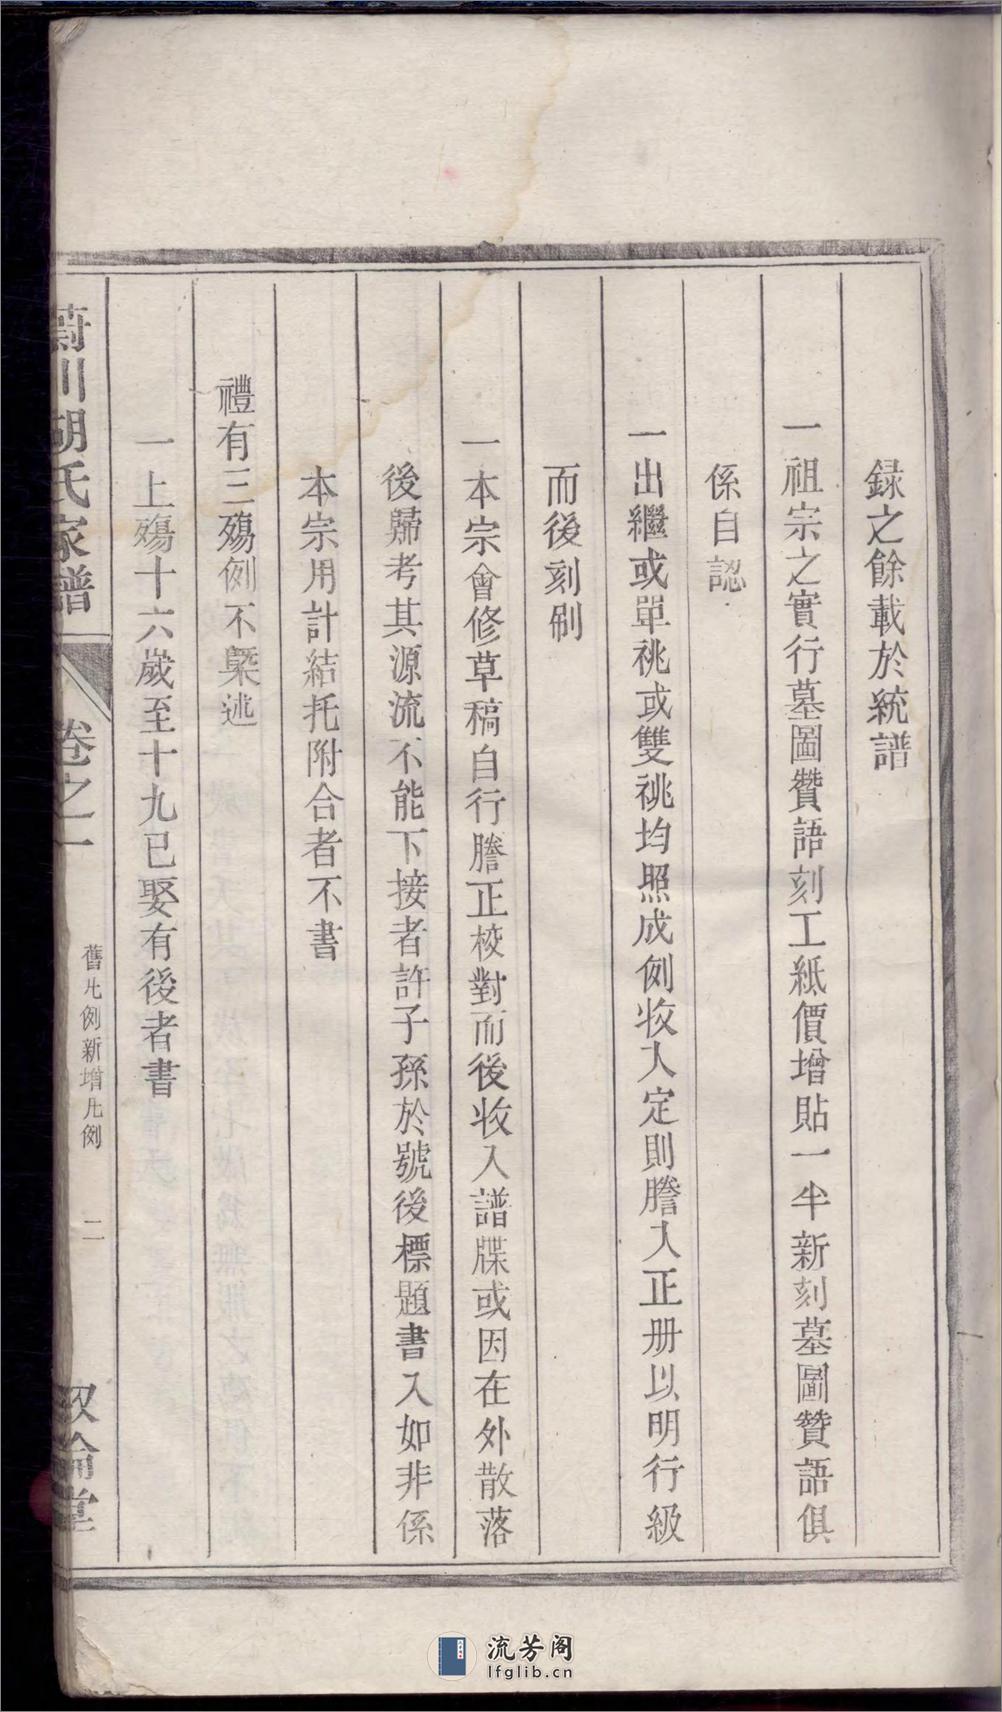 録之餘載於統譜
一祖宗之實行墓圖贊語刻工紙價增貼一半新刻墓圖贊語俱
係自認
一出繼或單祧或雙祧均照成例收入定則謄入正册以明行級
而後刻刷
一本宗會修草稿自行謄正校對而後收入譜牒或因在外散落
後歸考其源流不能下接者許子孫於號後標題書入如非係
本宗用計結托附合者不書
禮有三殤例不槩述
一上殤十六歲至十九已娶有後者書
蔚川胡氏家譜
卷之一
舊凡例新增凡例
二
叙倫堂
流芳阁
lfglib.cn